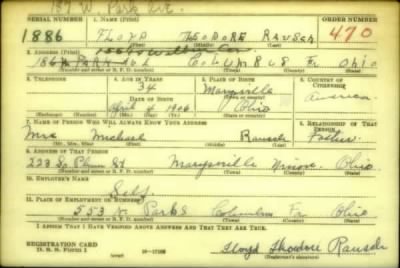 157 W. Park Ave.
SERIAL NUMBER 1. NAME (Print) ORDER NUMBER
1886 FLOYD THEODORE RAUSCH 470
(First) (Middle) (Last)
2. ADDRESS (Print)
186 W PARK Ave COLUMBUS Fr Ohio
(Number and street or R. F. D. number) (Town) (County) (State)
3. TELEPHONE 4. AGE IN YEARS 5. PLACE OF BIRTH 6. COUNTRY OF CITIZENSHIP
34 Marysville
DATE OF BIRTH
April 4 1906 Ohio American
(Mo.) (Day) (Yr.)
7. NAME OF PERSON WHO WILL ALWAYS KNOW YOUR ADDRESS 8. RELATIONSHIP OF THAT PERSON
Mrs Michael Rausch
(Mr., Mrs., Miss) (First) (Middle) (Last)
9. ADDRESS OF THAT PERSON
223 So Plum St Marysville Union Ohio
(Number and street or R. F. D. number) (Town) (County) (State)
10. EMPLOYER'S NAME
Self
11. PLACE OF EMPLOYMENT OR BUSINESS
553 N Park Columbus Fr Ohio
(Number and street or R. F. D. number) (Town) (County) (State)
I AFFIRM THAT I HAVE VERIFIED ABOVE ANSWERS AND THAT THEY ARE TRUE.
REGISTRATION CARD
D. S. S. FORM 1 Floyd Theodore Rausch